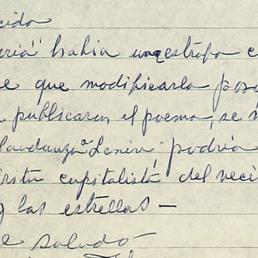 cido
eria" habia una estrofa e
e que modificarla pos
publicaran el poema, se
Lenin podría
rista capitalista del veci
y las estrellas —
e saludo